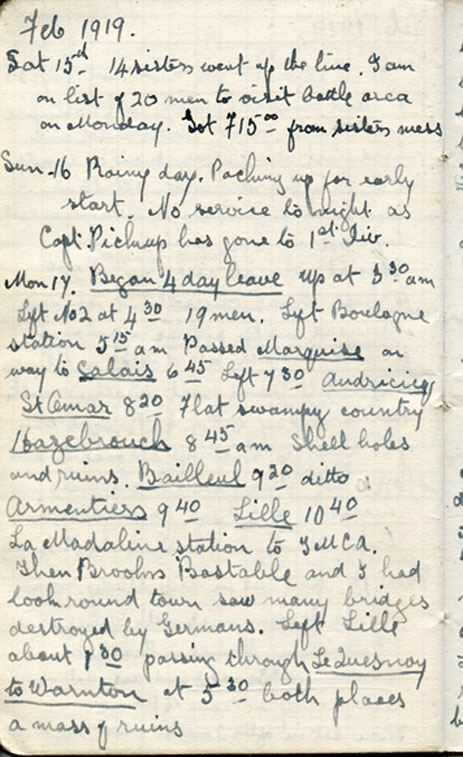 Feb 1919.
Sat 15th 14 sisters went up the line. I am
on list of 20 men to visit battle area
on Monday. Got 715.00 from sisters mess
Sun. 16 Rainy day. Packing up for early
start. No service to night as
Capt. Pickup has gone to 1st Div.
Mon 17. Began 4 day leave up at 3 30 am
Left No2 at 4 30 19 men. Left Boulogne
station 5 15 am Passed Marquise on
way to Calais 6 45 Left 7 30 Audricing
St Omar 8 20 Flat swampy country
Hazebrouch 8 45 am Shell holes
and ruins. Bailleul 9 20 ditto
Armentiers 9 40 Lille 10 40
La Madaline station to YMCA.
Then Bastable and I had
look round town saw many bridges
destroyed by Germans. Left Lille
about 1 30 passing through Le Quesnoy
to Warnton at 5 30 both places
a mass of ruins